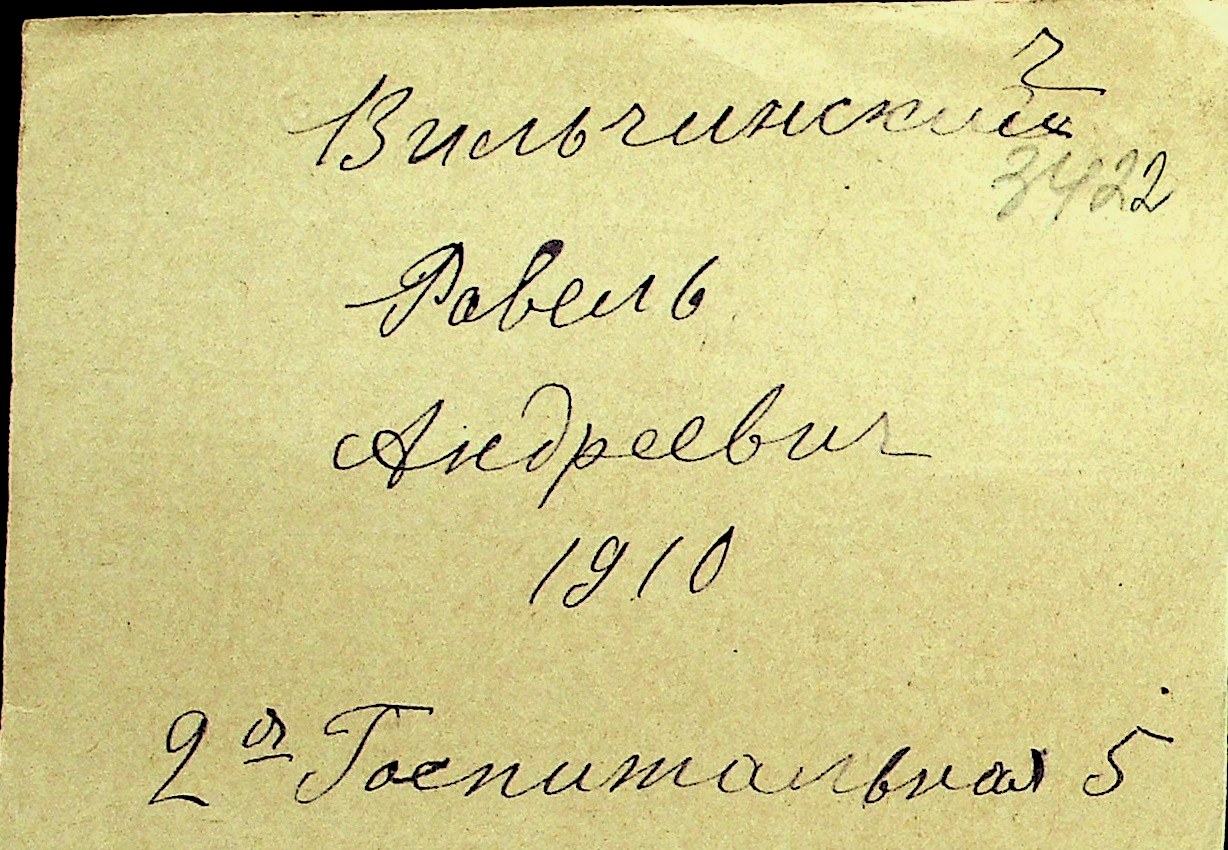 2
Вильчинский
3422
Равель
Андреевич
1910
2 ая Госпитальная 5